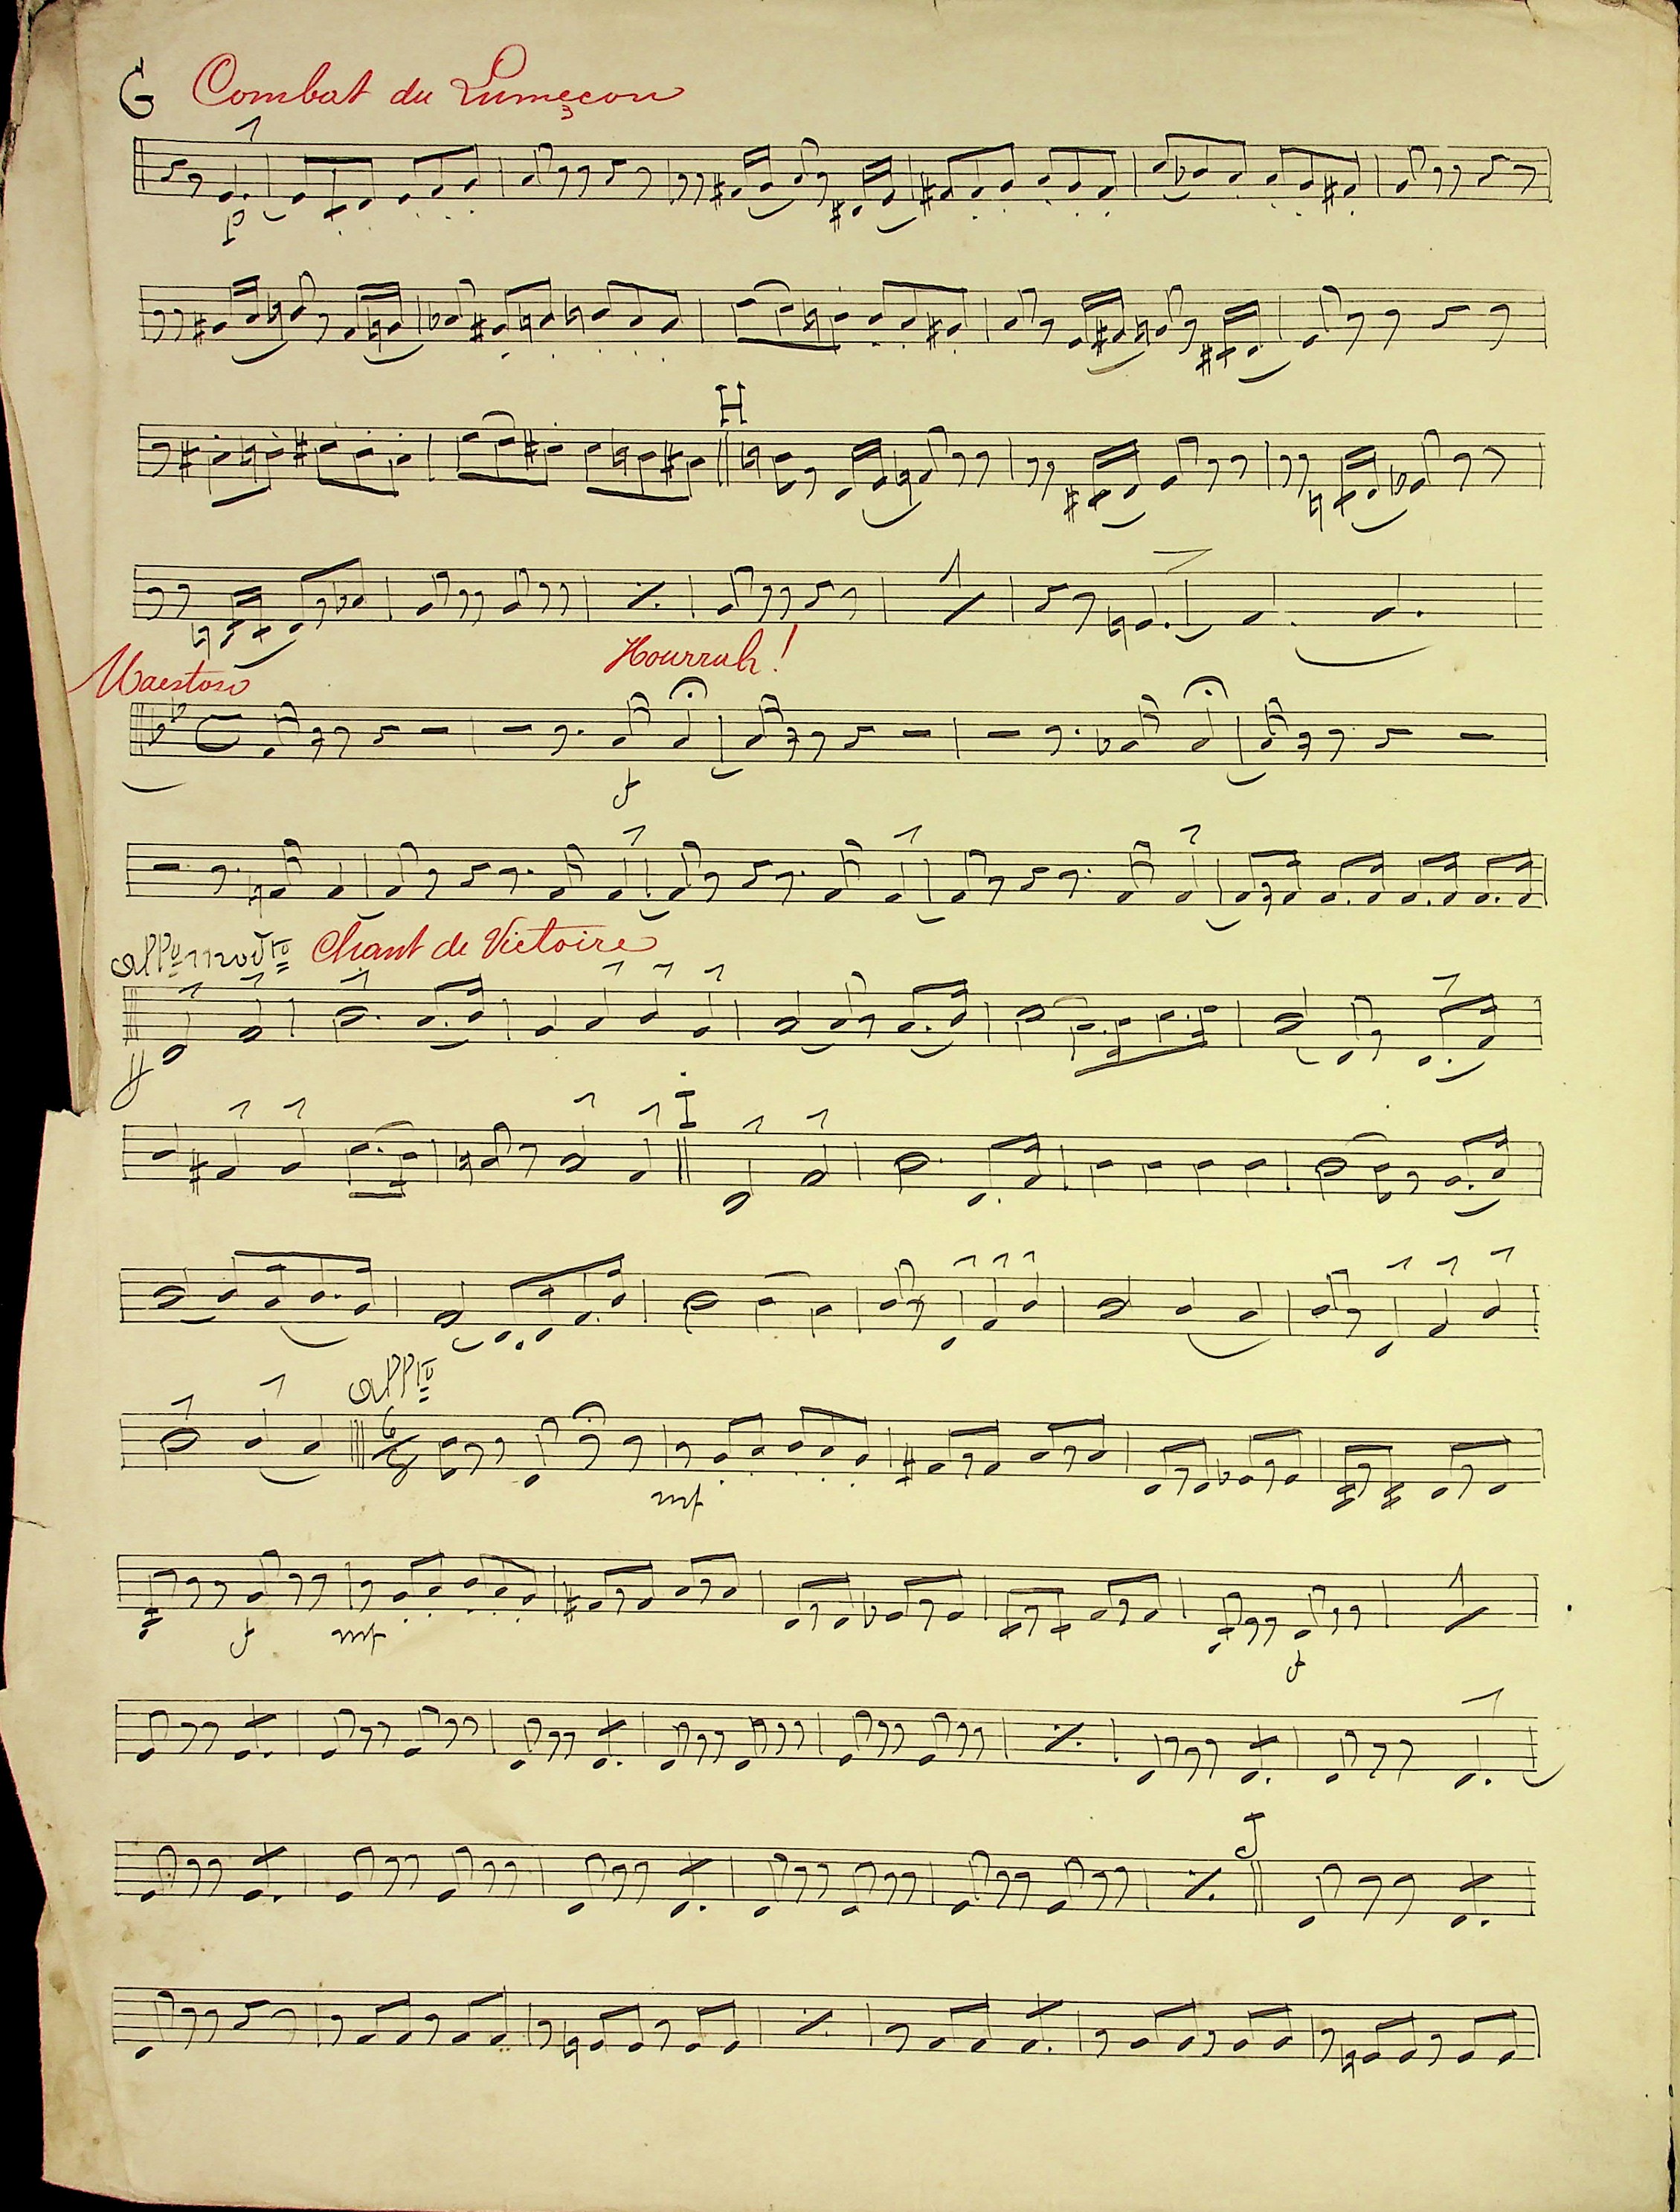 G Combat du Lumeçon
p
H
Maestoso Hourrah!
C
f
Allº modto Chant de Victoire
ff
I
Alltto
6
8
mf
f mf f
J